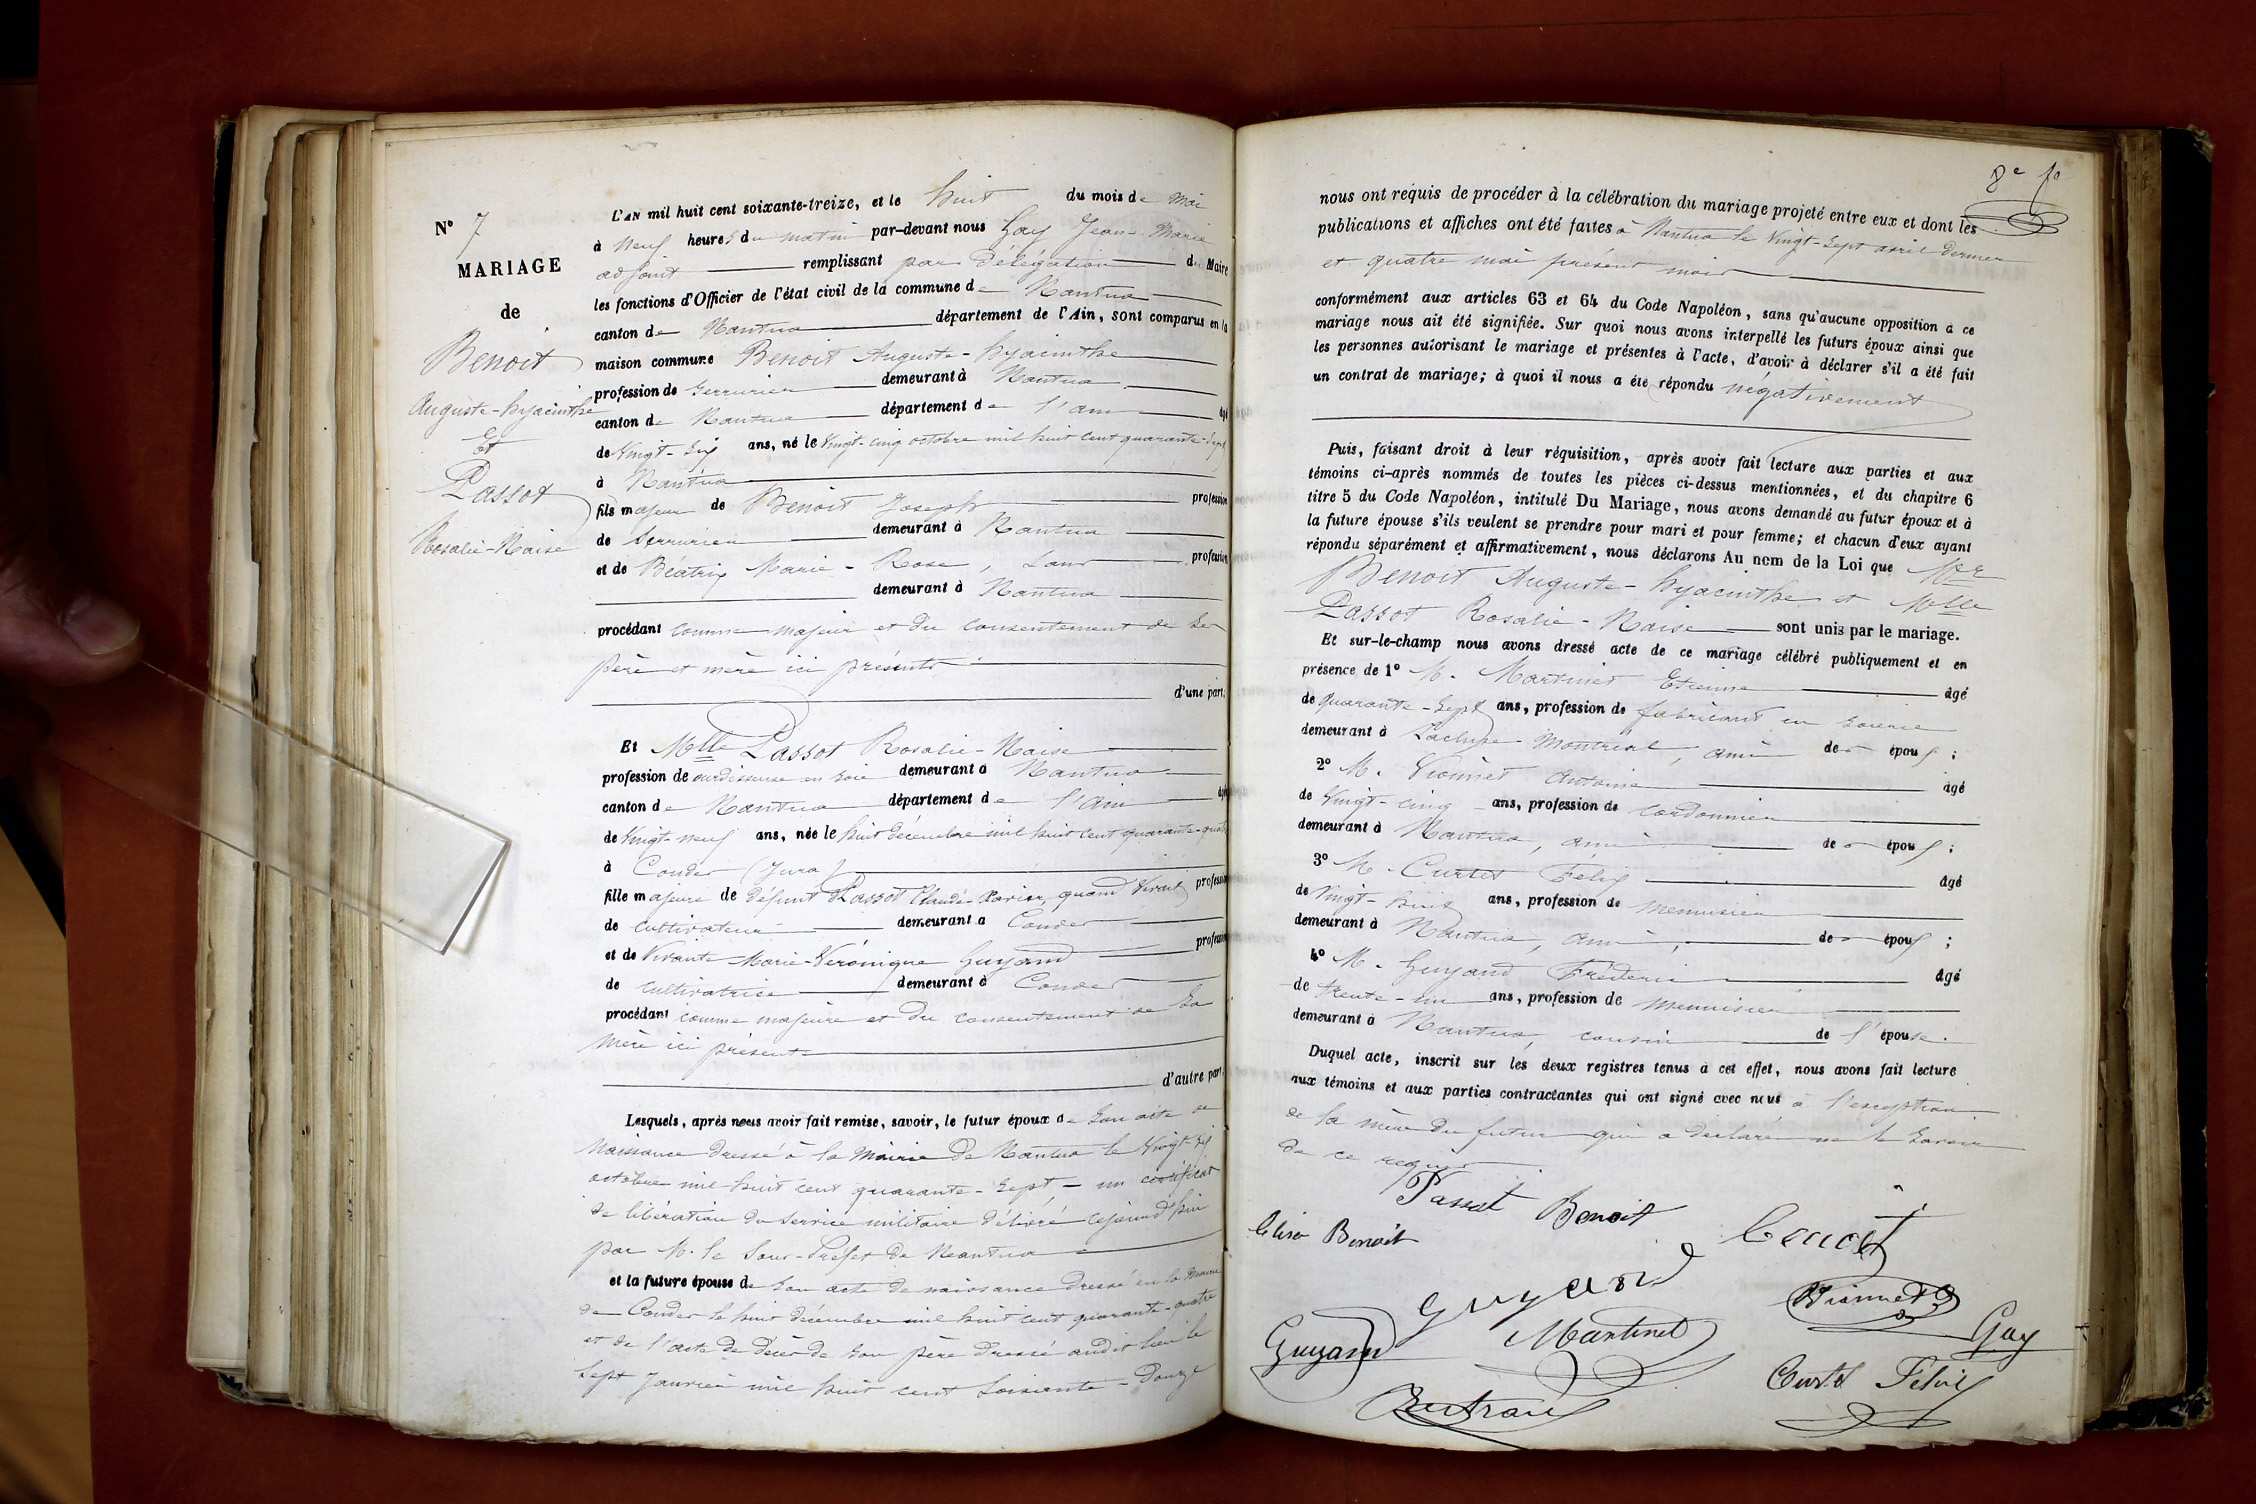 N° 7
MARIAGE
de
Benoit
Auguste-hyacinthe
Et
Passot
Rosalie-Naise
L'AN mil huit cent soixante-treize, et le huit du mois de Mai
à Neuf heures du matin par-devant nous Gay Jean-Marie
adjoint remplissant par délégation du Maire
les fonctions d'Officier de l'état civil de la commune de Nantua
canton de Nantua département de l'Ain, sont comparus en la
maison commune Benoit Auguste-hyacinthe
profession de Serrurier demeurant à Nantua
canton de Nantua département de l'ain âgé
de Vingt-Six ans, né le Vingt-cinq octobre mil huit cent quarante-sept
à Nantua
fils majeur de Benoit Joseph profession
de Serrurier demeurant à Nantua
et de Béatrix Marie-Rose, Sans profession
demeurant à Nantua
procédant comme majeur et du consentement de ses
père et mère ici présents
d'une part,
Et Melle Passot Rosalie-Naise
profession de ourdisseuse en soie demeurant à Nantua
canton de Nantua département de l'Ain âgée
de Vingt-neuf ans, née le huit décembre mil huit cent quarante-quatre
à Condes (Jura)
fille majeure de défunt Passot Claude-Xavier, quand Vivait profession
de cultivateur demeurant à Condes
et de Vivante Marie-Véronique Guyand profession
de cultivatrice demeurant à Condes
procédant comme majeure et du consentement de sa
mère ici présente
d'autre part,
Lesquels, après nous avoir fait remise, savoir, le futur époux de son acte de
naissance dressé à la Mairie de Nantua le Vingt-Six
octobre mil huit cent quarante-sept - un certificat
de libération du service militaire délivré cejourd'hui
par M. le Sous-Préfet de Nantua
et la future épouse de son acte de naissance dressé en la Mairie
de Condes le huit décembre mil huit cent quarante-quatre
et de l'acte de décès de son père dressé audit lieu le
sept Janvier mil huit cent soixante-douze
8e fo
nous ont requis de procéder à la célébration du mariage projeté entre eux et dont les
publications et affiches ont été faites à Nantua le Vingt-Sept avril dernier
et quatre mai présent mois
conformément aux articles 63 et 64 du Code Napoléon, sans qu'aucune opposition à ce
mariage nous ait été signifiée. Sur quoi nous avons interpellé les futurs époux ainsi que
les personnes autorisant le mariage et présentes à l'acte, d'avoir à déclarer s'il a été fait
un contrat de mariage; à quoi il nous a été répondu négativement
Puis, faisant droit à leur réquisition, après avoir fait lecture aux parties et aux
témoins ci-après nommés de toutes les pièces ci-dessus mentionnées, et du chapitre 6
titre 5 du Code Napoléon, intitulé Du Mariage, nous avons demandé au futur époux et à
la future épouse s'ils veulent se prendre pour mari et pour femme; et chacun d'eux ayant
répondu séparément et affirmativement, nous déclarons Au nom de la Loi que Mr
Benoit Auguste-hyacinthe et Melle
Passot Rosalie-Naise sont unis par le mariage.
Et sur-le-champ nous avons dressé acte de ce mariage célébré publiquement et en
présence de 1° M. Martinet Etienne âgé
de Quarante-Sept ans, profession de fabricant en soierie
demeurant à Lacluse Montréal, ami des époux;
2° M. Vionnet Antoine âgé
de Vingt-cinq ans, profession de cordonnier
demeurant à Nantua, ami des époux;
3° M. Curtet Félix âgé
de Vingt-huit ans, profession de menuisier
demeurant à Nantua, ami, des époux;
4° M. Guyand Frédéric âgé
de trente-un ans, profession de menuisier
demeurant à Nantua, cousin de l'épouse.
Duquel acte, inscrit sur les deux registres tenus à cet effet, nous avons fait lecture
aux témoins et aux parties contractantes qui ont signé avec nous à l'exception
de la mère du futur qui a déclaré ne le savoir
de ce requis
Passot Benoit
Benoit
Benoit
Guyand
Vionnet
Martinet
Gay
Guyand
Curtet Félix